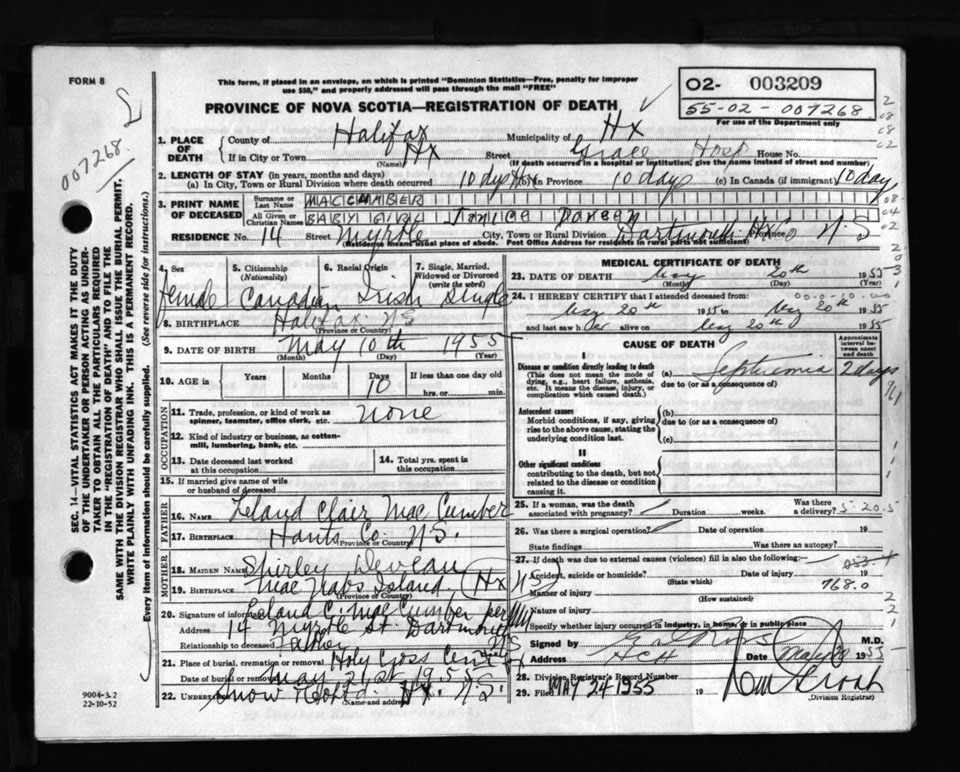 FORM 8
This form, if placed in an envelope, on which is printed "Dominion Statistics—Free, penalty for improper
use $50," and properly addressed will pass through the mail "FREE"
PROVINCE OF NOVA SCOTIA—REGISTRATION OF DEATH
02- 003209
55-02-007268
For use of the Department only
007268
SEC. 14—VITAL STATISTICS ACT MAKES IT THE DUTY
OF THE UNDERTAKER OR PERSON ACTING AS UNDER-
TAKER TO OBTAIN ALL THE PARTICULARS REQUIRED
IN THE "REGISTRATION OF DEATH" AND TO FILE THE
SAME WITH THE DIVISION REGISTRAR WHO SHALL ISSUE THE BURIAL PERMIT.
WRITE PLAINLY WITH UNFADING INK. THIS IS A PERMANENT RECORD.
Every item of information should be carefully supplied. (See reverse side for instructions.)
1. PLACE OF DEATH County of Halifax Municipality of Hx
If in City or Town Hx Street Grace Hosp House No.
(Name) (If death occurred in a hospital or institution, give the name instead of street and number)
2. LENGTH OF STAY (in years, months and days)
(a) In City, Town or Rural Division where death occurred 10 days (b) In Province 10 days (c) In Canada (if immigrant) 10 days
3. PRINT NAME OF DECEASED Surname or Last Name MACCUMBER
All Given or Christian Names BABY GIRL Janice Doreen
RESIDENCE No. 14 Street Myrtle City, Town or Rural Division Dartmouth Hx Co Province N.S
(Residence means usual place of abode. Post Office Address for residents in rural parts not sufficient)
4. Sex female
5. Citizenship (Nationality) Canadian
6. Racial Origin Irish
7. Single, Married, Widowed or Divorced (write the word) Single
8. BIRTHPLACE Halifax N.S
(Province or Country)
9. DATE OF BIRTH May 10th 1955
(Month) (Day) (Year)
10. AGE in Years Months Days 10 If less than one day old
hrs. or min.
OCCUPATION
11. Trade, profession, or kind of work as spinner, teamster, office clerk, etc. none
12. Kind of industry or business, as cotton-mill, lumbering, bank, etc.
13. Date deceased last worked at this occupation
14. Total yrs. spent in this occupation
15. If married give name of wife or husband of deceased
FATHER
16. NAME Leland Clair MacCumber
17. BIRTHPLACE Hants Co. N.S.
(Province or Country)
MOTHER
18. MAIDEN NAME Shirley Deveau
19. BIRTHPLACE MacNabs Island (Hx) N.S
(Province or Country)
20. Signature of informant Leland C. MacCumber per
Address 14 Myrtle St. Dartmouth N.S
Relationship to deceased Father
21. Place of burial, cremation or removal Holy Cross Cemetery
Date of burial or removal May 21st 1955
22. UNDERTAKER Snow Co Ltd. Hx. N.S.
(Name and address)
9004-3.2
22-10-52
MEDICAL CERTIFICATE OF DEATH
23. DATE OF DEATH May 20th 1955
(Month) (Day) (Year)
24. I HEREBY CERTIFY that I attended deceased from:
May 20th 1955 to May 20th 1955
and last saw her alive on May 20th 1955
CAUSE OF DEATH
Approximate interval between onset and death
I
Disease or condition directly leading to death
(This does not mean the mode of dying, e.g., heart failure, asthenia, etc. It means the disease, injury, or complication which caused death.)
(a) Septicemia 2 days
due to (or as a consequence of)
Antecedent causes
Morbid conditions, if any, giving rise to the above cause, stating the underlying condition last.
(b)
due to (or as a consequence of)
(c)
II
Other significant conditions
contributing to the death, but not related to the disease or condition causing it.
25. If a woman, was the death associated with pregnancy? Duration weeks. Was there a delivery?
26. Was there a surgical operation? Date of operation 19
State findings Was there an autopsy?
27. If death was due to external causes (violence) fill in also the following:
Accident, suicide or homicide? Date of injury 19
(State which)
Manner of injury 768.0
(How sustained)
Nature of injury
Specify whether injury occurred in industry, in home, or in public place
Signed by M.D.
Address HCH Date May 20 1955
28. Division Registrar's Record Number
29. Filed MAY 24 1955 19
(Division Registrar)